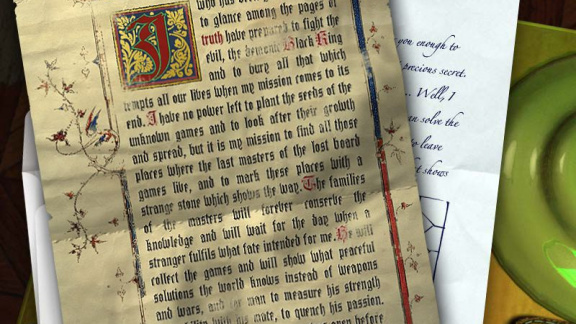 who has
to glance among the pages of
truth have prepared to fight the
evil, the demonic Black King
and to bury all that which
tempts all our lives when my mission comes to its
end. I have no power left to plant the seeds of the
unknown games and to look after their growth
and spread, but it is my mission to find all those
places where the last masters of the lost board
games live, and to mark these places with a
strange stone which shows the way. The families
of the masters will forever conserve the
knowledge and will wait for the day when a
stranger fulfils what fate intended for me. He will
collect the games and will show what peaceful
solutions the world knows instead of weapons
and wars, and for man to measure his strength
with his mate, to quench his passion.
before
you enough to
precious secret.
... Well, I
solve the
to leave
shows